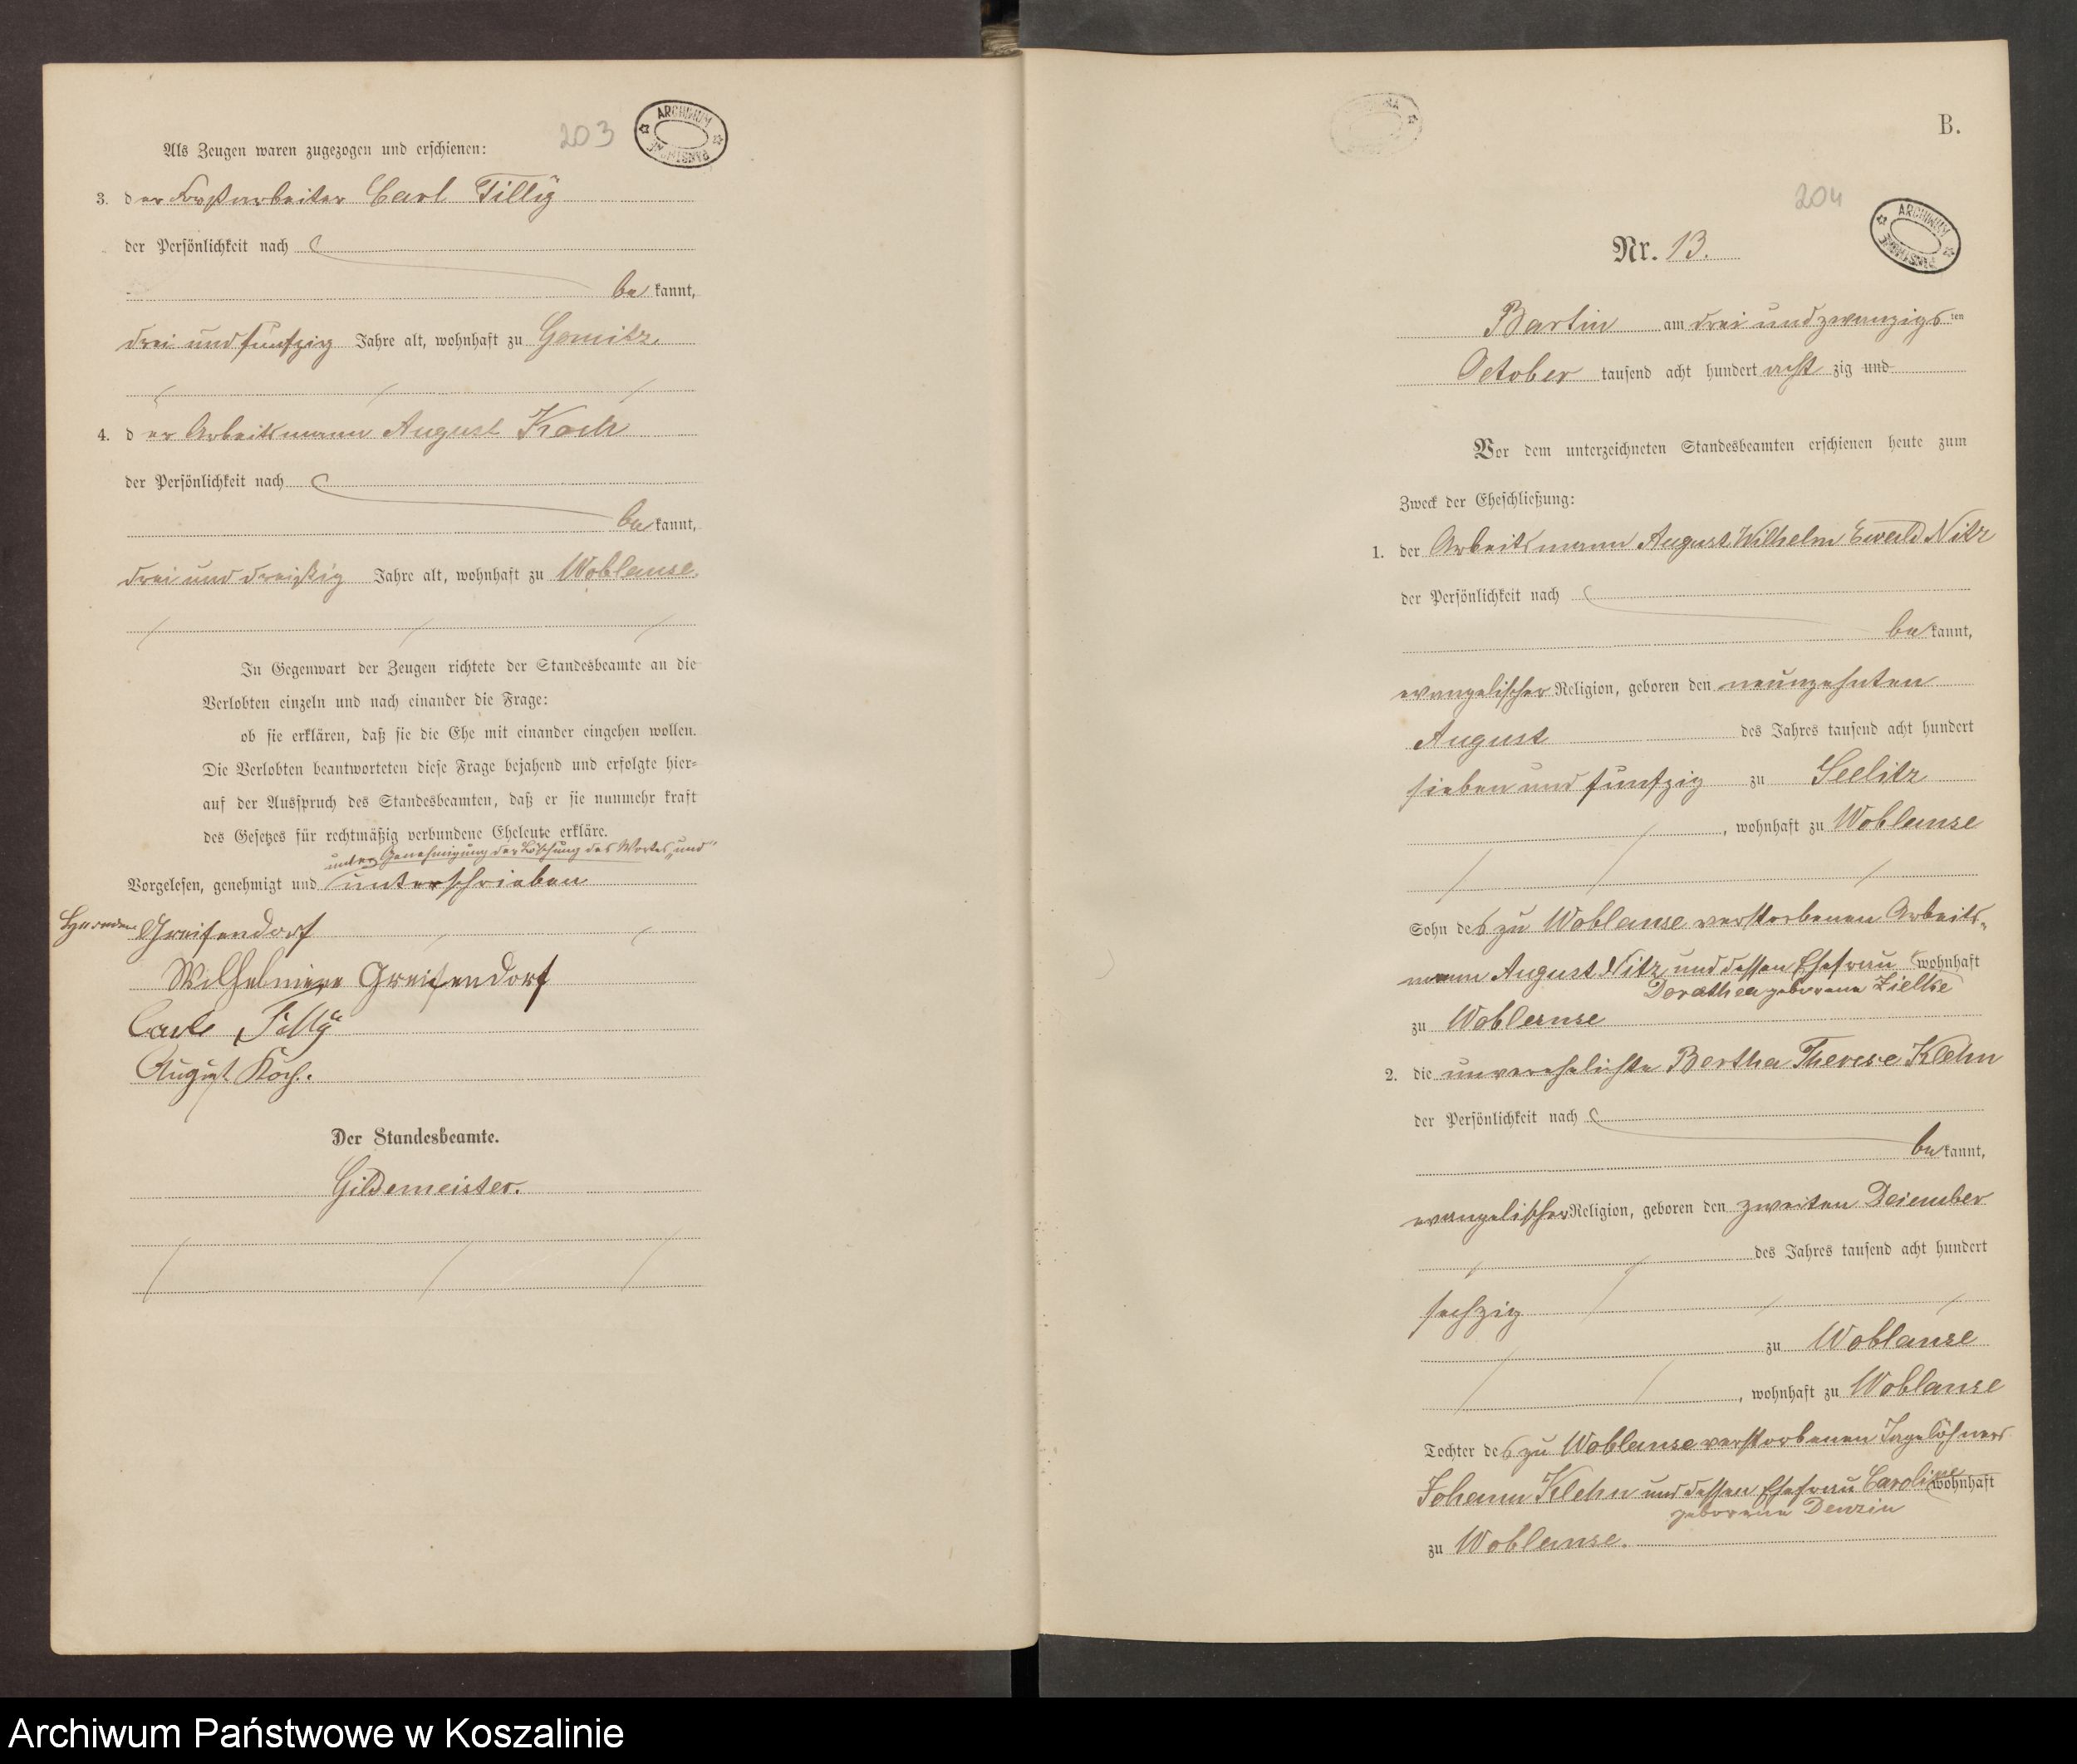 203
ARCHIWUM PAŃSTWOWE
Als Zeugen waren zugezogen und erschienen:
3. der Forstarbeiter Carl Tillÿ
der Persönlichkeit nach
bekannt,
drei und fünfzig Jahre alt, wohnhaft zu Gewitz.
4. der Arbeitsmann August Koch
der Persönlichkeit nach
bekannt,
drei und dreißig Jahre alt, wohnhaft zu Woblanse.
In Gegenwart der Zeugen richtete der Standesbeamte an die
Verlobten einzeln und nach einander die Frage:
ob sie erklären, daß sie die Ehe mit einander eingehen wollen.
Die Verlobten beantworteten diese Frage bejahend und erfolgte hier=
auf der Ausspruch des Standesbeamten, daß er sie nunmehr kraft
des Gesetzes für rechtmäßig verbundene Eheleute erkläre.
unter Genehmigung der Löschung des Wortes „und“
Vorgelesen, genehmigt und unterschrieben
Greifendorf
Wilhelmine Greifendorf
Carl Tillÿ
August Koch.
Der Standesbeamte.
Gildemeister.
B.
204
ARCHIWUM PAŃSTWOWE
Nr. 13.
Bartin am drei und zwanzigsten
October tausend acht hundert achtzig und
Vor dem unterzeichneten Standesbeamten erschienen heute zum
Zweck der Eheschließung:
1. der Arbeitsmann August Wilhelm Ewald Nitz
der Persönlichkeit nach
bekannt,
evangelischer Religion, geboren den neunzehnten
August des Jahres tausend acht hundert
sieben und fünfzig zu Seelitz
, wohnhaft zu Woblanse
Sohn des zu Woblanse verstorbenen Arbeits-
mann August Nitz und dessen Ehefrau wohnhaft
Dorothea geborene Zielke
zu Woblanse
2. die unverehelichte Bertha Therese Klehn
der Persönlichkeit nach
bekannt,
evangelischer Religion, geboren den zweiten Dezember
des Jahres tausend acht hundert
sechzig
zu Woblanse
, wohnhaft zu Woblanse
Tochter des zu Woblanse verstorbenen Tagelöhners
Johann Klehn und dessen Ehefrau Caroline wohnhaft
geborene Denzin
zu Woblanse.
Archiwum Państwowe w Koszalinie